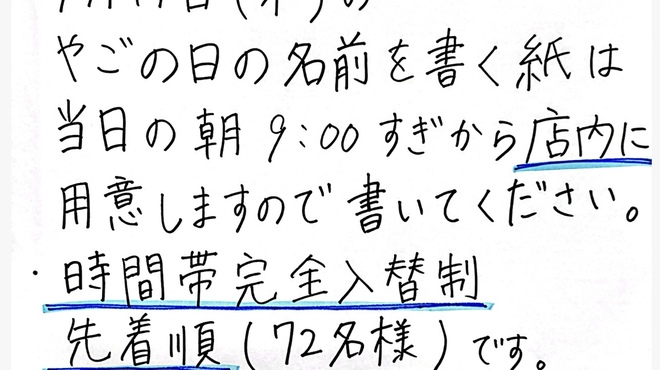 やごの日の名前を書く紙は
当日の朝 9:00 すぎから店内に
用意しますので書いてください。
・時間帯完全入替制
先着順(72名様)です。